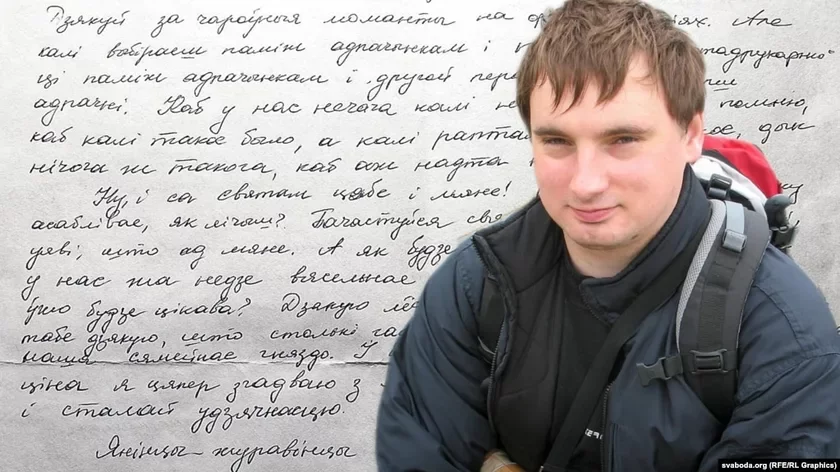 Дзякуй за чароўныя моманты на
калі выбіраеш паміж адпачынкам і
ці паміж адпачынкам і другой
адпачні. Каб у нас нечага калі не помню,
каб калі такое было, а калі дык
нічога ж такога, каб аж надта
Ну, і са святам цябе і мяне!
асаблівае, як лічыш?
што ад мяне. А як будзе
у нас жа недзе вясельнае
ўжо будзе цікава? Дзякую
табе дзякую, што столькі
наша сямейнае гняздо. І
ціна я цяпер згадваю з
і сталай удзячнасцю.
Янініцы-журавініцы
svaboda.org (RFE/RL Graphics)